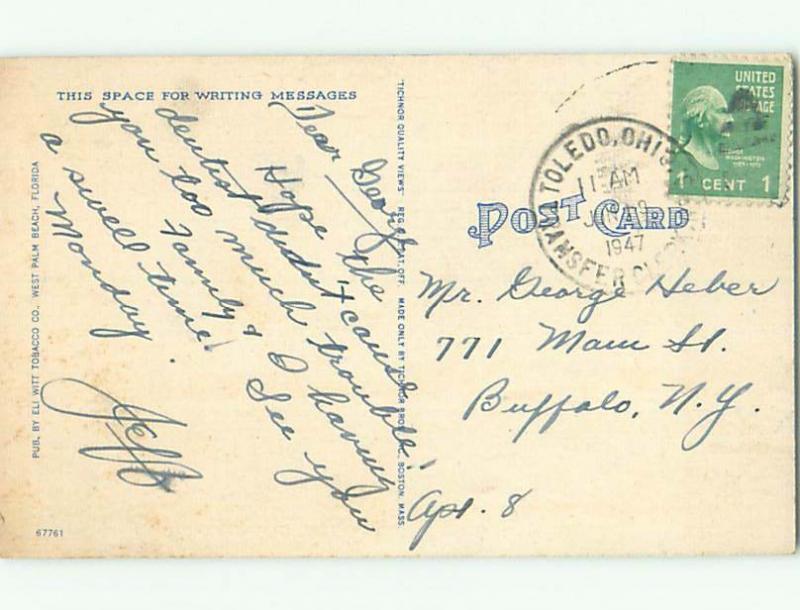 THIS SPACE FOR WRITING MESSAGES
Dear George
Hope the
dentist didn't cause
you too much trouble!
Family & I having
a swell time! See you
Monday.
Jeff
PUB. BY ELI WITT TOBACCO CO., WEST PALM BEACH, FLORIDA
67761
"TICHNOR QUALITY VIEWS" REG. U.S. PAT. OFF. MADE ONLY BY TICHNOR BROS., INC., BOSTON, MASS.
POST CARD
TOLEDO, OHIO
11 AM
1947
TRANSFER CLERK
UNITED
STATES
POSTAGE
WASHINGTON
1 CENT 1
Mr. George Heber
771 Main St.
Buffalo, N.Y.
Apt. 8